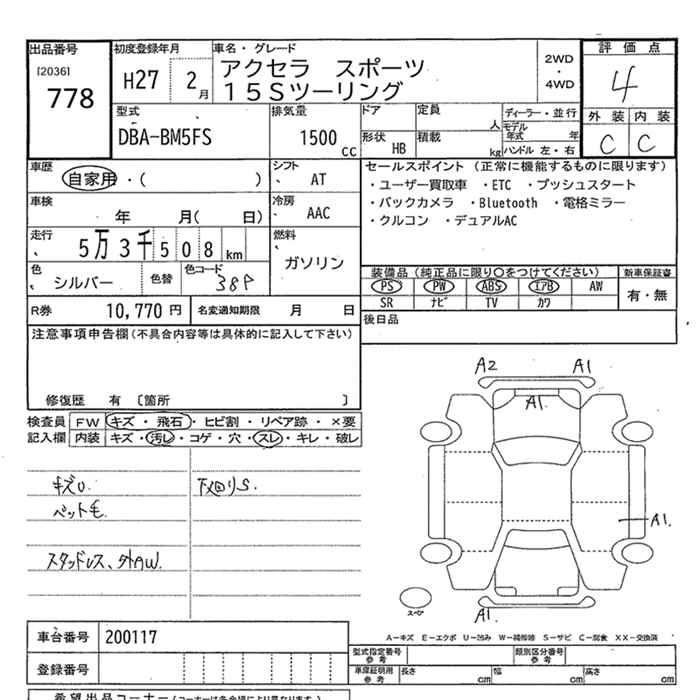 出品番号 初度登録年月 車名・グレード 2WD・4WD 評価点
[2036] 778 H27 2月 アクセラ スポーツ 4
15Sツーリング
型式 排気量 ドア 定員 人 ディーラー・並行 外装 内装
DBA-BM5FS 1500cc 形状 HB 積載 kg モデル年式 年 ハンドル 左・右 C C
車歴 自家用・( ) シフト AT セールスポイント (正常に機能するものに限ります)
・ユーザー買取車 ・ETC ・プッシュスタート
車検 年 月( 日) 冷房 AAC ・バックカメラ ・Bluetooth ・電格ミラー
・クルコン ・デュアルAC
走行 5万3千508km 燃料 ガソリン
色 シルバー 色替 色コード 38P 装備品 (純正品に限り○をつけてください) 新車保証書
PS PW ABS エアB AW 有・無
SR ナビ TV カワ
R券 10,770円 名変通知期限 月 日 後日品
注意事項申告欄 (不具合内容等は具体的に記入して下さい)
修復歴 有 [箇所 ]
検査員 FW キズ・飛石・ヒビ割・リペア跡・×要
記入欄 内装 キズ・汚レ・コゲ・穴・スレ・キレ・破レ
キズU. 下廻りS.
ペット毛
スタッドレス、外AW.
A2 A1
A1.
A1.
スペア
A1.
A-キズ E-エクボ U-凹み W-補修跡 S-サビ C-腐食 XX-交換済
車台番号 200117 型式指定番号 参考 類別区分番号 参考
登録番号 車庫証明用 参考 長さ cm 幅 cm 高さ cm
希望出品コーナー (コーナーは各会場により異なります)